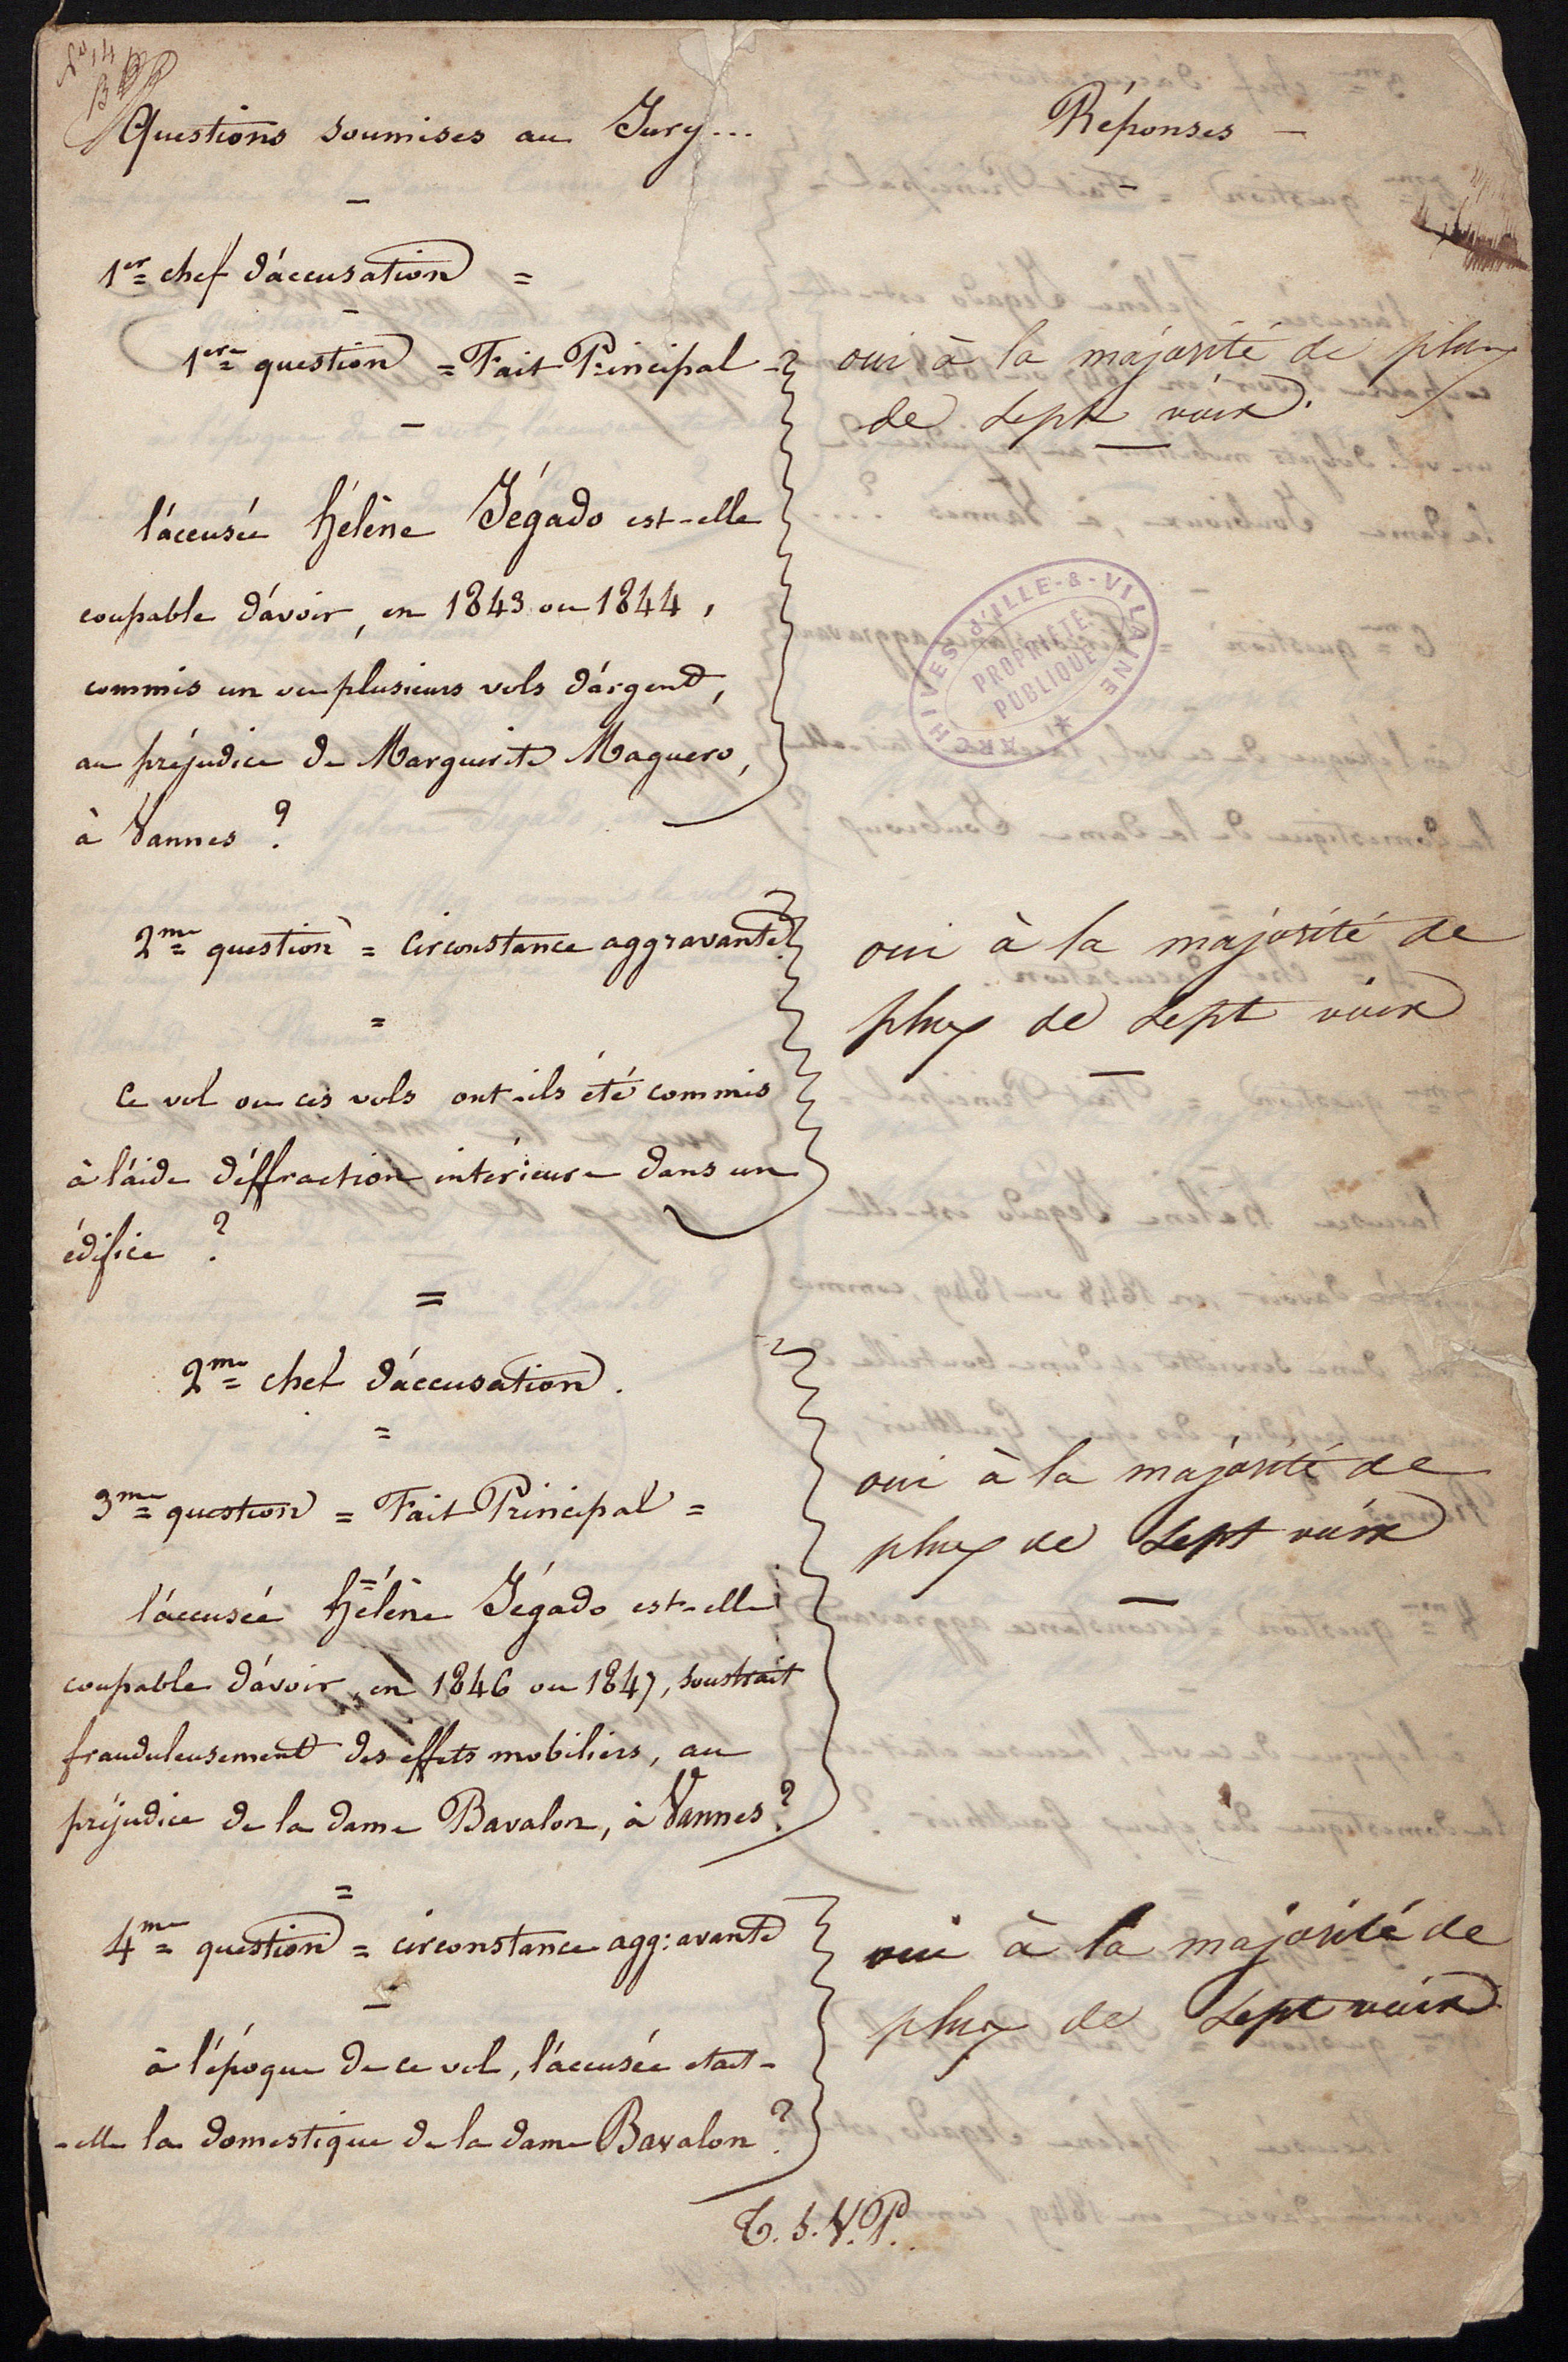 Questions soumises au Jury...
Réponses —
1er chef d'accusation =
1ere question = Fait Principal -
oui à la majorité de plus
de sept voix.
l'accusée hélène Jégado est-elle
coupable d'avoir, en 1843 ou 1844,
commis un ou plusieurs vols d'argent,
au préjudice de Marguerite Maguéro,
à Vannes ?
ARCHIVES d'ILLE-&-VILAINE
PROPRIETE
PUBLIQUE
2me question = circonstance aggravante
oui à la majorité de
plus de sept voix
=
Ce vol ou ces vols ont-ils été commis
à l'aide d'éffraction intérieure dans un
édifice ?
=
2me chef d'accusation.
=
3me question = Fait Principal =
oui à la majorité de
plus de sept voix
l'accusée hélène Jégado est-elle
coupable d'avoir, en 1846 ou 1847, soustrait
frauduleusement des effets mobiliers, au
préjudice de la dame Bavalon, à Vannes ?
=
4me question = circonstance aggravante
oui à la majorité de
plus de sept voix
à l'époque de ce vol, l'accusée etait-
-elle la domestique de la dame Bavalon ?
T.S.V.P.